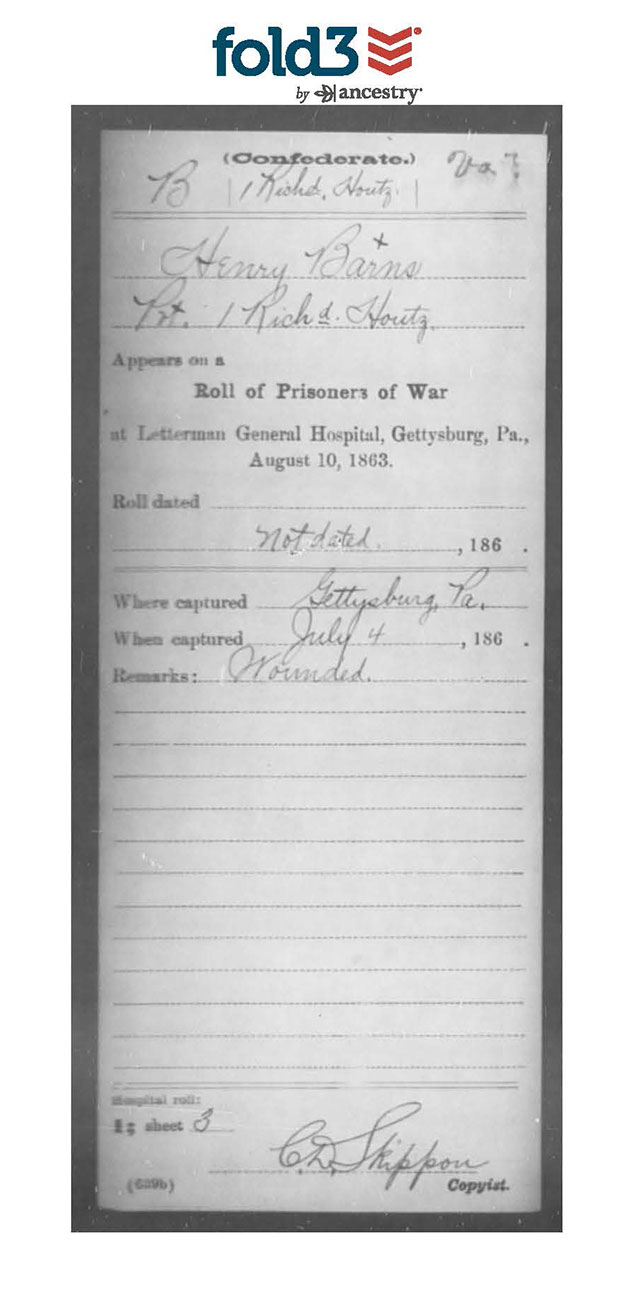 fold3
by ancestry
(Confederate.)
Va?
B | 1 Richd. Houtz. |
Henry Barns
x
Pvt. 1 Richd. Houtz.
Appears on a
Roll of Prisoners of War
at Letterman General Hospital, Gettysburg, Pa.,
August 10, 1863.
Roll dated
Not dated. , 186 .
Where captured Gettysburg, Pa.
When captured July 4 , 186 .
Remarks: Wounded.
Hospital roll:
sheet 3
C.D. Skippon
(639b) Copyist.